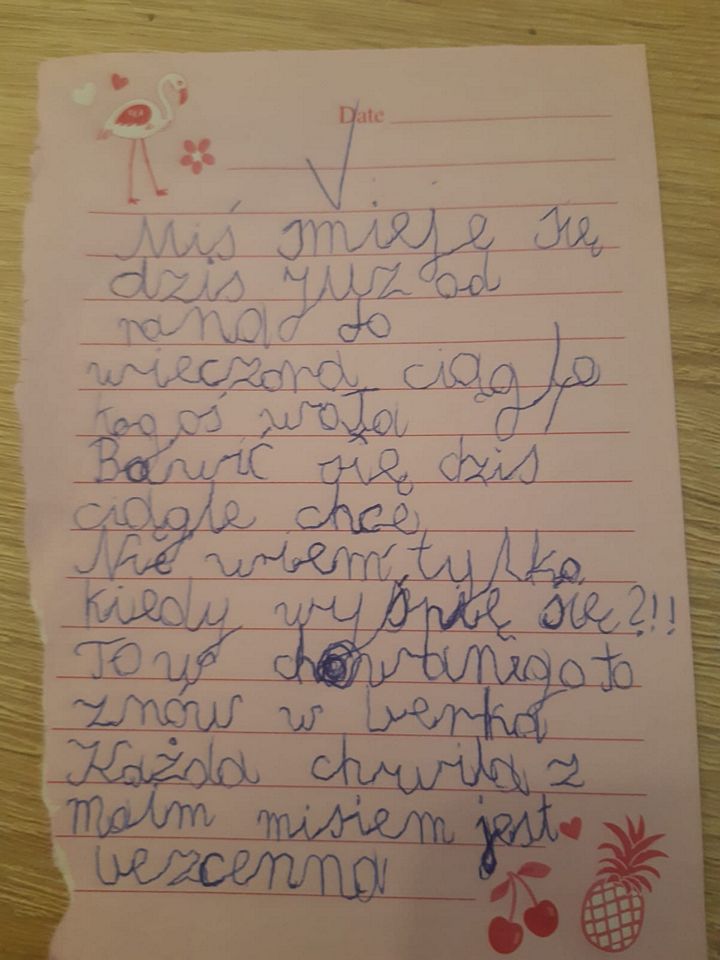 Date
Miś śmieje się
dziś już od
rana do
wieczora ciągle
kogoś woła
Bawić się dziś
ciągle chce
Nie wiem tylko
kiedy wyśpię się?!!
To w chowanego to
znów w berka
Każda chwila z
moim misiem jest
bezcenna